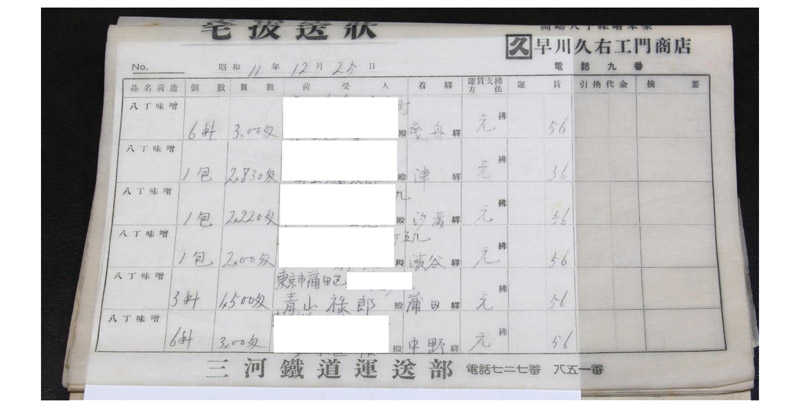 宅扱送狀
岡崎八丁味噌本家
久 早川久右エ門商店
電話九番
No. 昭和 11 年 12 月 25 日
品名荷造 個數 貫數 荷受人 着驛 運賃支拂方法 運賃 引換代金 摘要
八丁味噌 6斜 3.00匁 殿 驛 元拂 56
八丁味噌 1包 2,830匁 殿 津驛 元拂 36
八丁味噌 1包 2,220匁 殿 汐留驛 元拂 56
八丁味噌 1包 2.00匁 殿 渋谷驛 元拂 56
八丁味噌 3斜 1,500匁 東京市蒲田区 青山祿郎殿 蒲田驛 元拂 56
八丁味噌 6斜 3.00匁 殿 中野驛 元拂 56
三河鐵道運送部 電話七二七番 八五一番